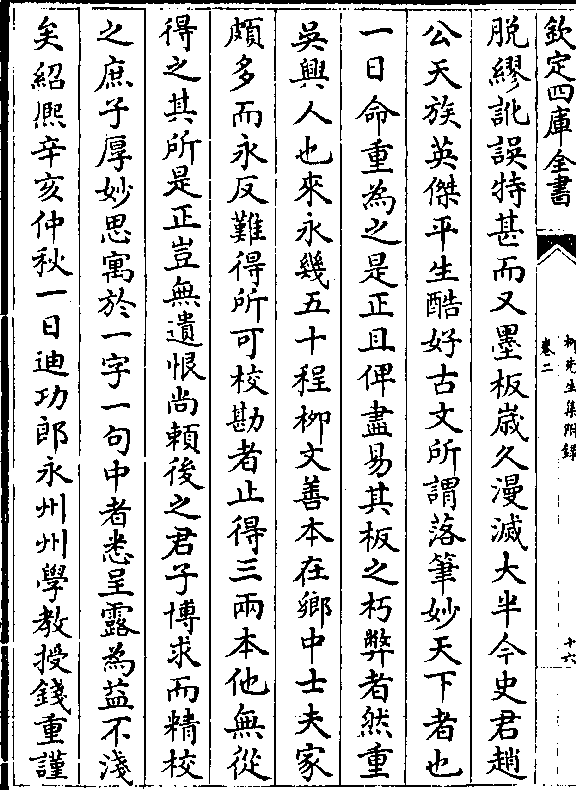 欽定四庫全書
柳先生集附錄
卷二
十六
脱繆訛誤特甚而又墨板歲久漫滅大半今史君趙
公天族英傑平生酷好古文所謂落筆妙天下者也
一日命重為之是正且俾盡易其板之朽弊者然重
吳興人也來永幾五十程柳文善本在鄉中士夫家
頗多而永反難得所可校勘者止得三兩本他無從
得之其所是正豈無遺恨尚頼後之君子博求而精校
之庶子厚妙思寓於一字一句中者悉呈露為益不淺
矣紹熈辛亥仲秋一日迪功郎永州州學教授錢重謹